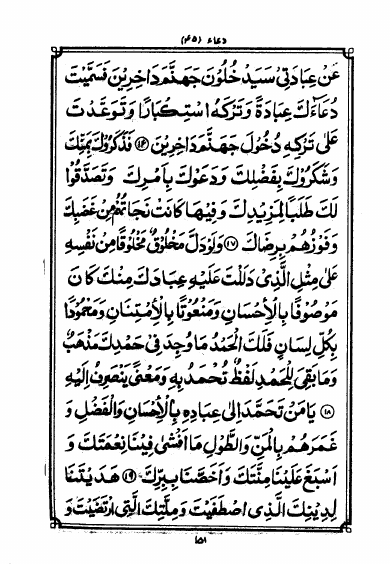 دعاء (۴۵)
عَنْ عِبَادَتِى سَيَدْخُلُونَ جَهَنَّمَ دَاخِرِينَ فَسَمَّيْتَ
دُعَآءَكَ عِبَادَةً وَتَرْكَهُ اسْتِكْبَارًا وَتَوَعَّدْتَ
عَلٰى تَرْكِهِ دُخُولَ جَهَنَّمَ دَاخِرِينَ ﴿١٦﴾ فَذَكَرُوكَ بِمَنِّكَ
وَشَكَرُوكَ بِفَضْلِكَ وَدَعَوْكَ بِاَمْرِكَ وَتَصَدَّقُوا
لَكَ طَلَبًا لِمَزِيدِكَ وَفِيهَا كَانَتْ نَجَاتُهُمْ مِنْ غَضَبِكَ
وَفَوْزُهُمْ بِرِضَاكَ ﴿١٧﴾ وَلَوْ دَلَّ مَخْلُوقٌ مَخْلُوقًا مِنْ نَفْسِهِ
عَلٰى مِثْلِ الَّذِى دَلَلْتَ عَلَيْهِ عِبَادَكَ مِنْكَ كَانَ
مَوْصُوفًا بِالْاِحْسَانِ وَمَنْعُوتًا بِالْاِمْتِنَانِ وَمَحْمُودًا
بِكُلِّ لِسَانٍ فَلَكَ الْحَمْدُ مَا وُجِدَ فِى حَمْدِكَ مَذْهَبٌ
وَمَا بَقِىَ لِلْحَمْدِ لَفْظٌ تُحْمَدُ بِهِ وَمَعْنًى يَنْصَرِفُ اِلَيْهِ
﴿١٨﴾ يَا مَنْ تَحَمَّدَ اِلٰى عِبَادِهِ بِالْاِحْسَانِ وَالْفَضْلِ وَ
غَمَرَهُمْ بِالْمَنِّ وَالطَّوْلِ مَا اَفْشٰى فِينَا نِعْمَتَكَ وَ
اَسْبَغَ عَلَيْنَا مِنَّتَكَ وَاَخَصَّنَا بِبِرِّكَ ﴿١٩﴾ هَدَيْتَنَا
لِدِينِكَ الَّذِى اصْطَفَيْتَ وَمِلَّتِكَ الَّتِى ارْتَضَيْتَ وَ
١٥١